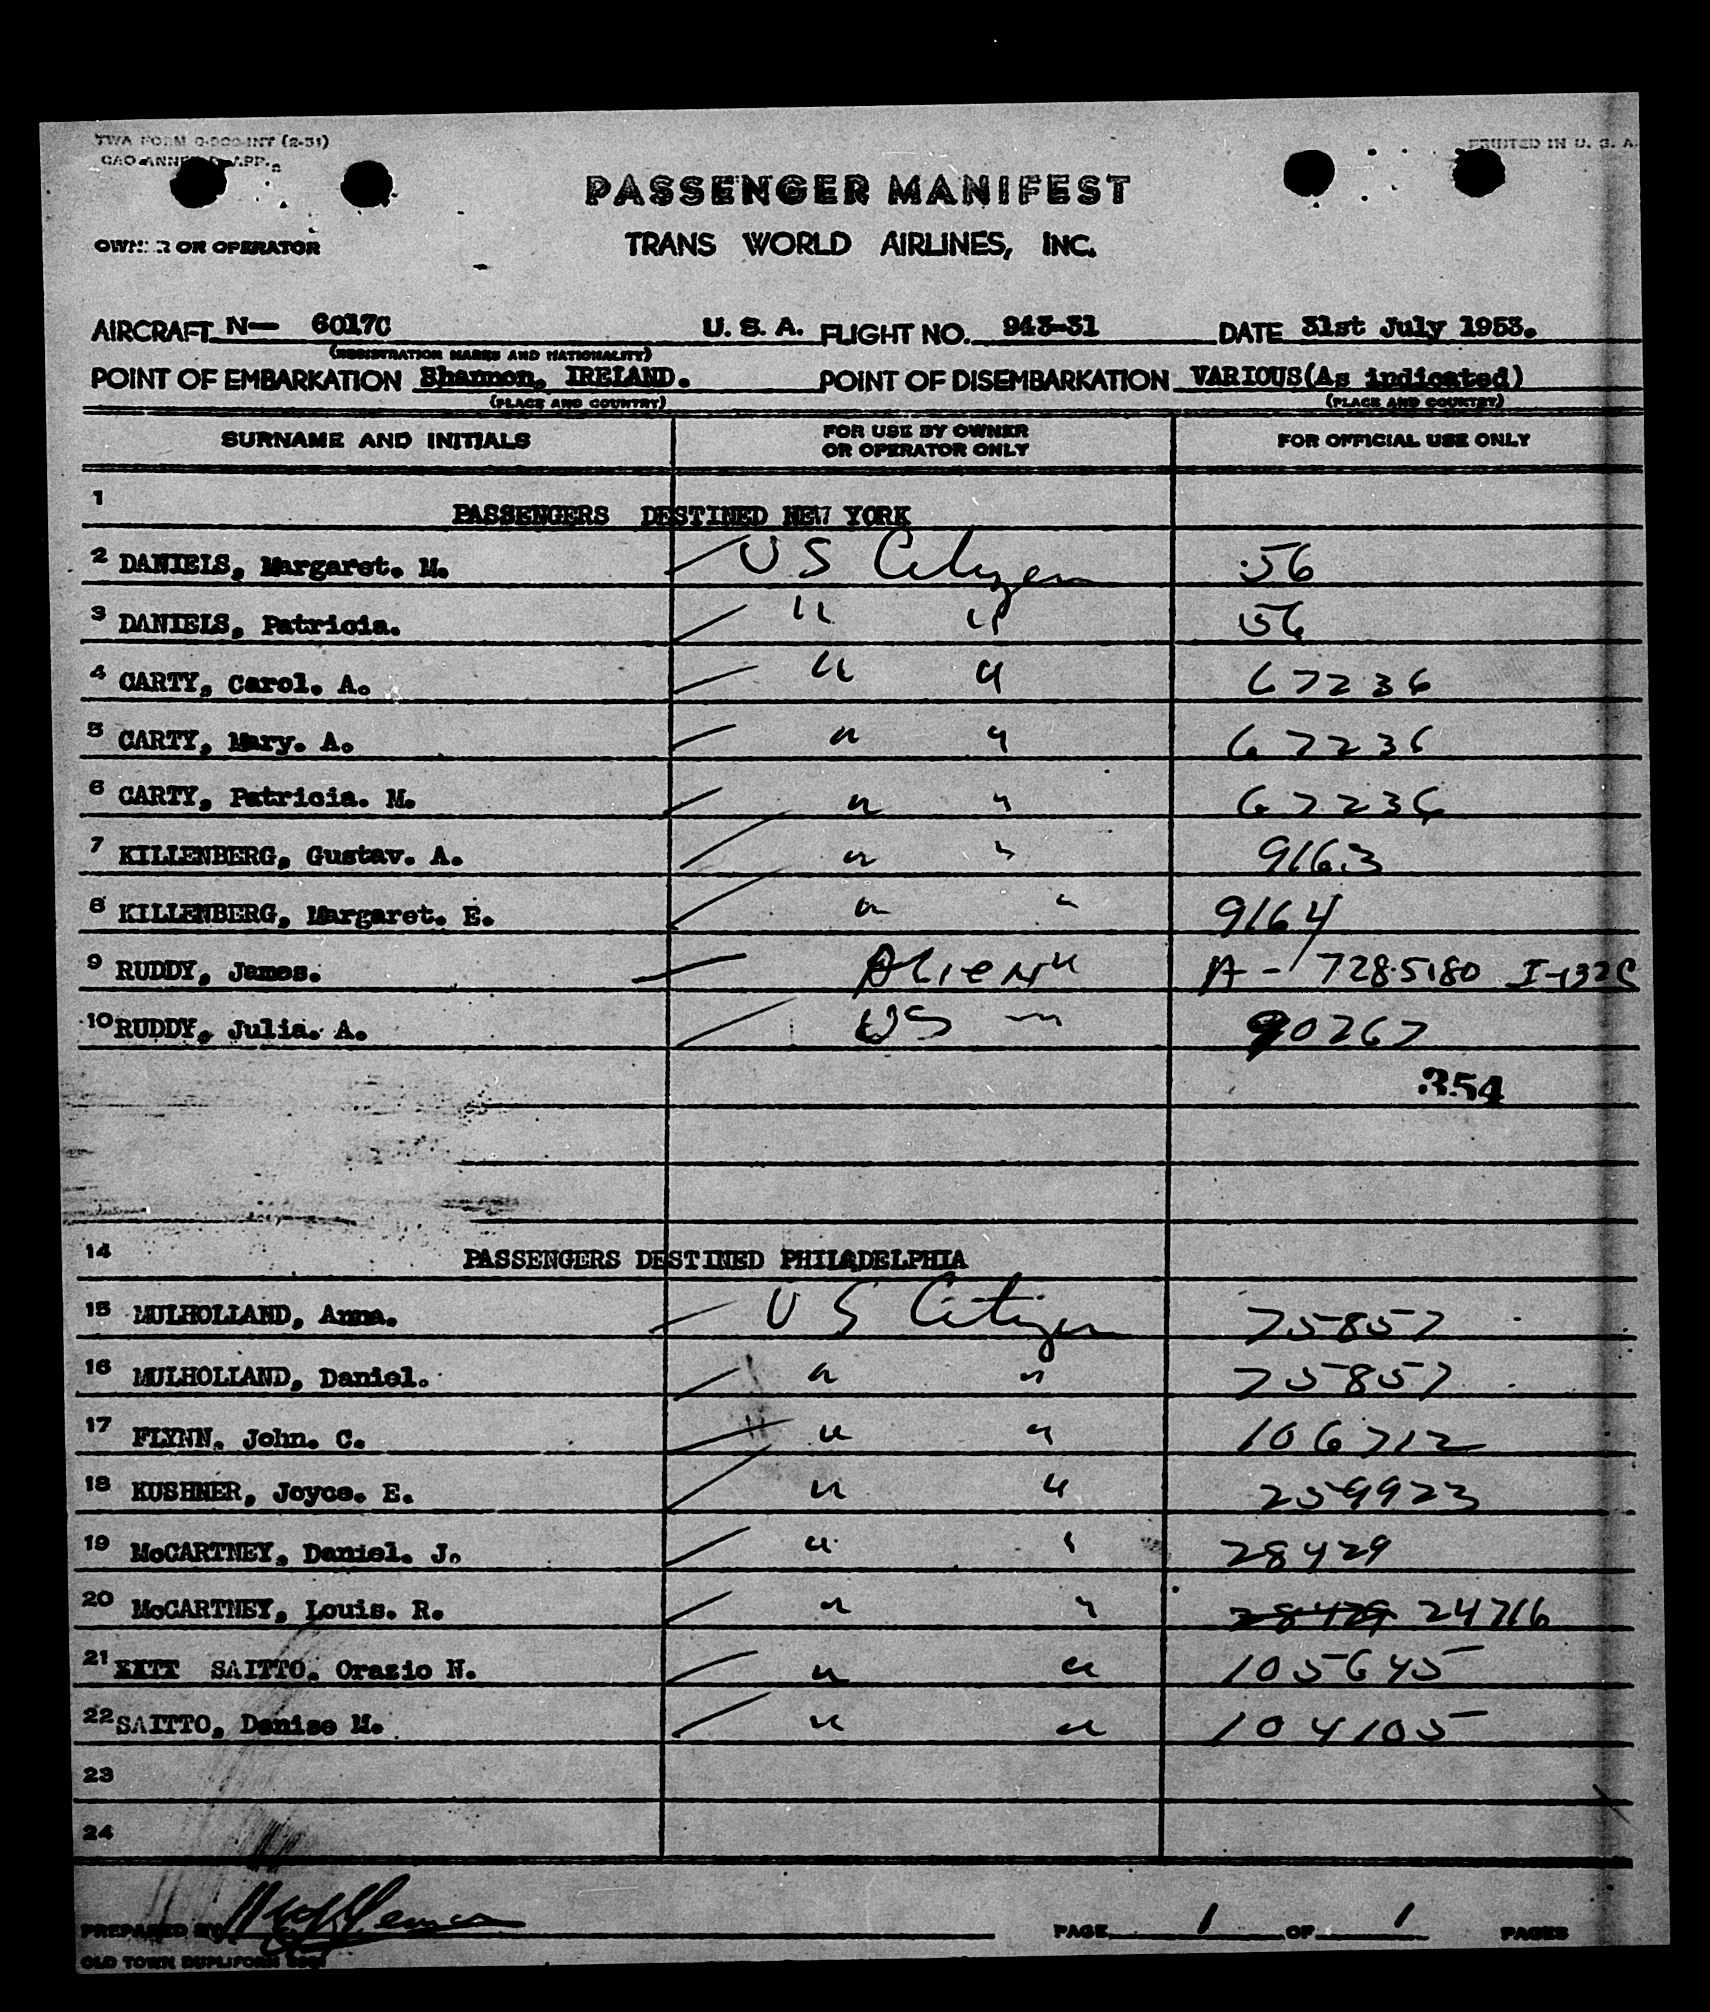 TWA FORM
PRINTED IN U. S. A.
PASSENGER MANIFEST
OWNER OR OPERATOR
TRANS WORLD AIRLINES, INC.
AIRCRAFT N— 6017C U. S. A. FLIGHT NO. 943-31 DATE 31st July 1953.
(REGISTRATION MARKS AND NATIONALITY)
POINT OF EMBARKATION Shannon, IRELAND. POINT OF DISEMBARKATION VARIOUS(As indicated)
(PLACE AND COUNTRY) (PLACE AND COUNTRY)
SURNAME AND INITIALS FOR USE BY OWNER OR OPERATOR ONLY FOR OFFICIAL USE ONLY
1 PASSENGERS DESTINED NEW YORK
2 DANIELS, Margaret. M. US Citizen 56
3 DANIELS, Patricia. " " 56
4 CARTY, Carol. A. " " 67236
5 CARTY, Mary. A. " " 67236
6 CARTY, Patricia. M. " " 67236
7 KILLENBERG, Gustav. A. " " 9163
8 KILLENBERG, Margaret. E. " " 9164
9 RUDDY, James. Alien " A- 7285180 I-132C
10 RUDDY, Julia. A. US " 90267
354
14 PASSENGERS DESTINED PHILADELPHIA
15 MULHOLLAND, Anna. US Citizen 75857
16 MULHOLLAND, Daniel. " " 75857
17 FLYNN, John. C. " " 106712
18 KUSHNER, Joyce. E. " " 259923
19 McCARTNEY, Daniel. J. " " 28429
20 McCARTNEY, Louis. R. " " 28429 24716
21 SAITTO, Orazio N. " " 105645
22 SAITTO, Denise M. " " 104105
23
24
PREPARED BY PAGE 1 OF 1 PAGES
OLD TOWN DUPLIFORM